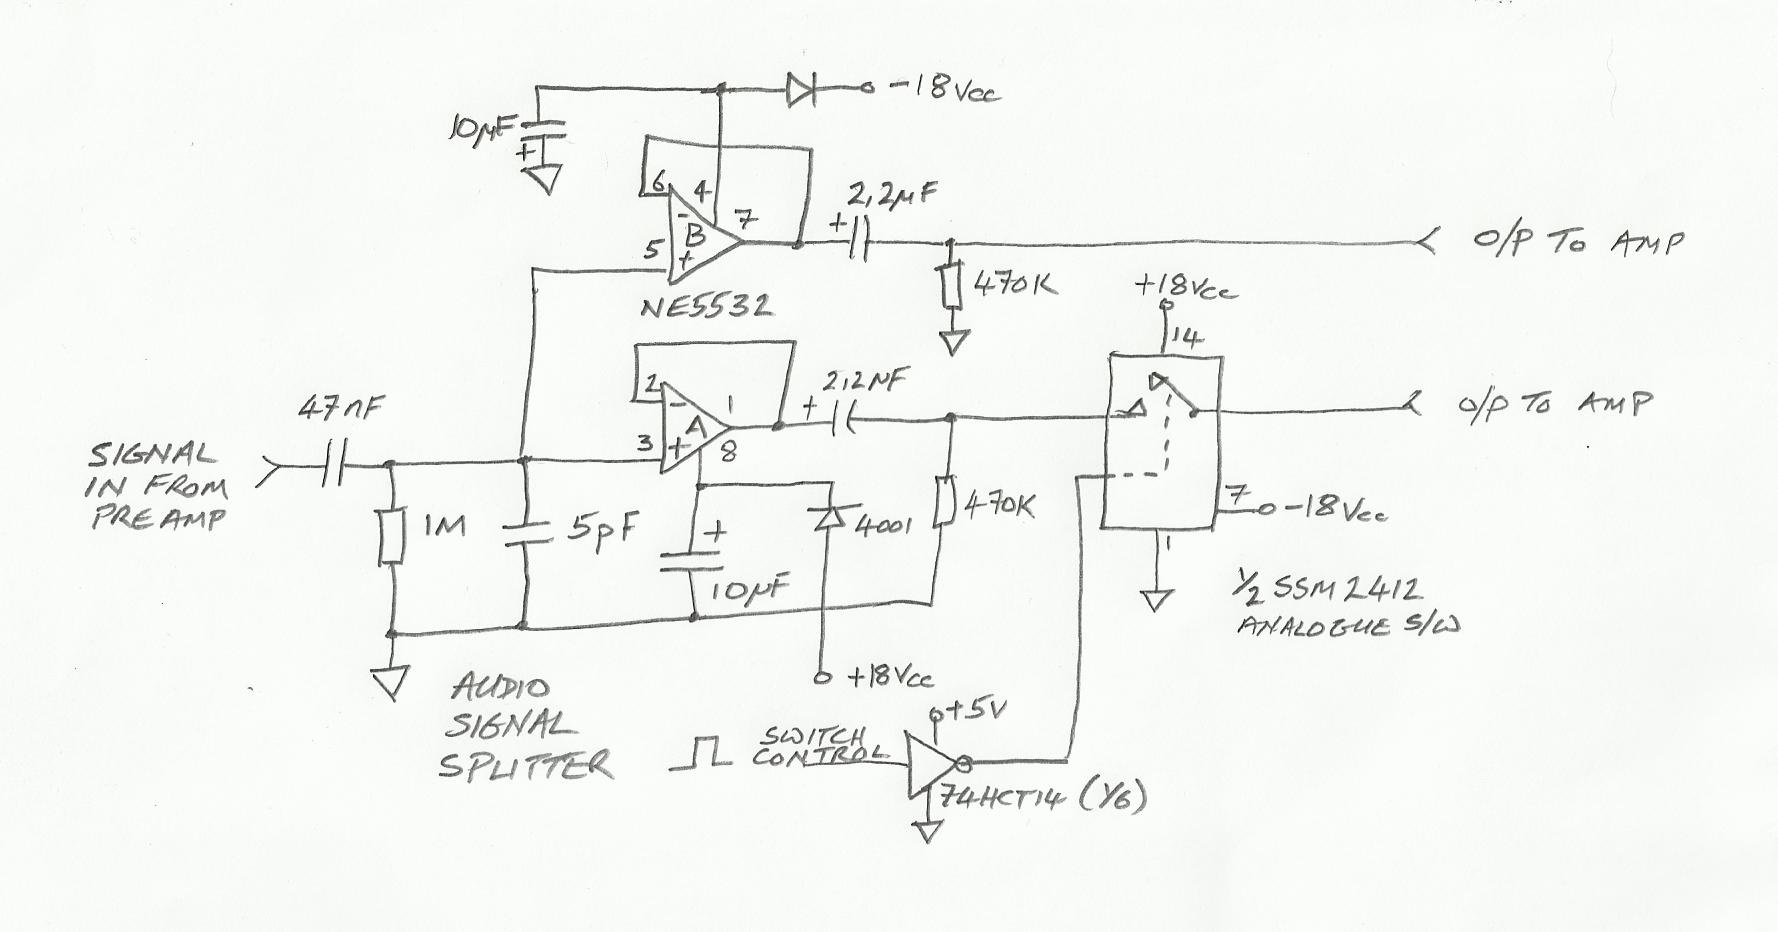 -18Vcc
10µF
+
6
4
2,2µF
+
7
-
B
5
+
O/P TO AMP
470K
NE5532
+18Vcc
14
2,2µF
+
2
-
1
47nF
A
O/P TO AMP
3
+
8
SIGNAL
IN FROM
PREAMP
7
-18Vcc
1M
5pF
+
4001
470K
1
10µF
1/2 SSM2412
ANALOGUE S/W
+18Vcc
AUDIO
SIGNAL
SPLITTER
+5V
SWITCH
CONTROL
74HCT14 (1/6)